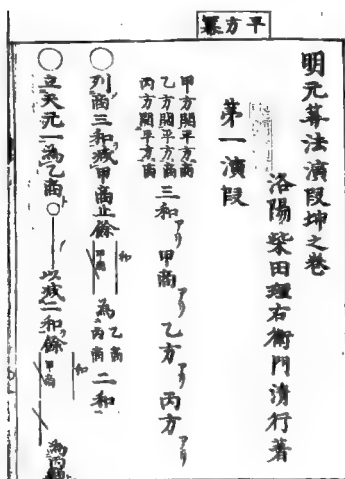 平方冪
明元筭法演段坤之巻
洛陽柴田理右衛門清行著
第一演段
甲方開平方商
乙方開平方商
丙方開平方商
三和アリ 甲商アリ 乙方アリ 丙方アリ
○列商三和減甲商止餘 和 甲商 為乙商丙商二和
○立天元一為乙商○ 以減二和餘 和 甲商 為丙